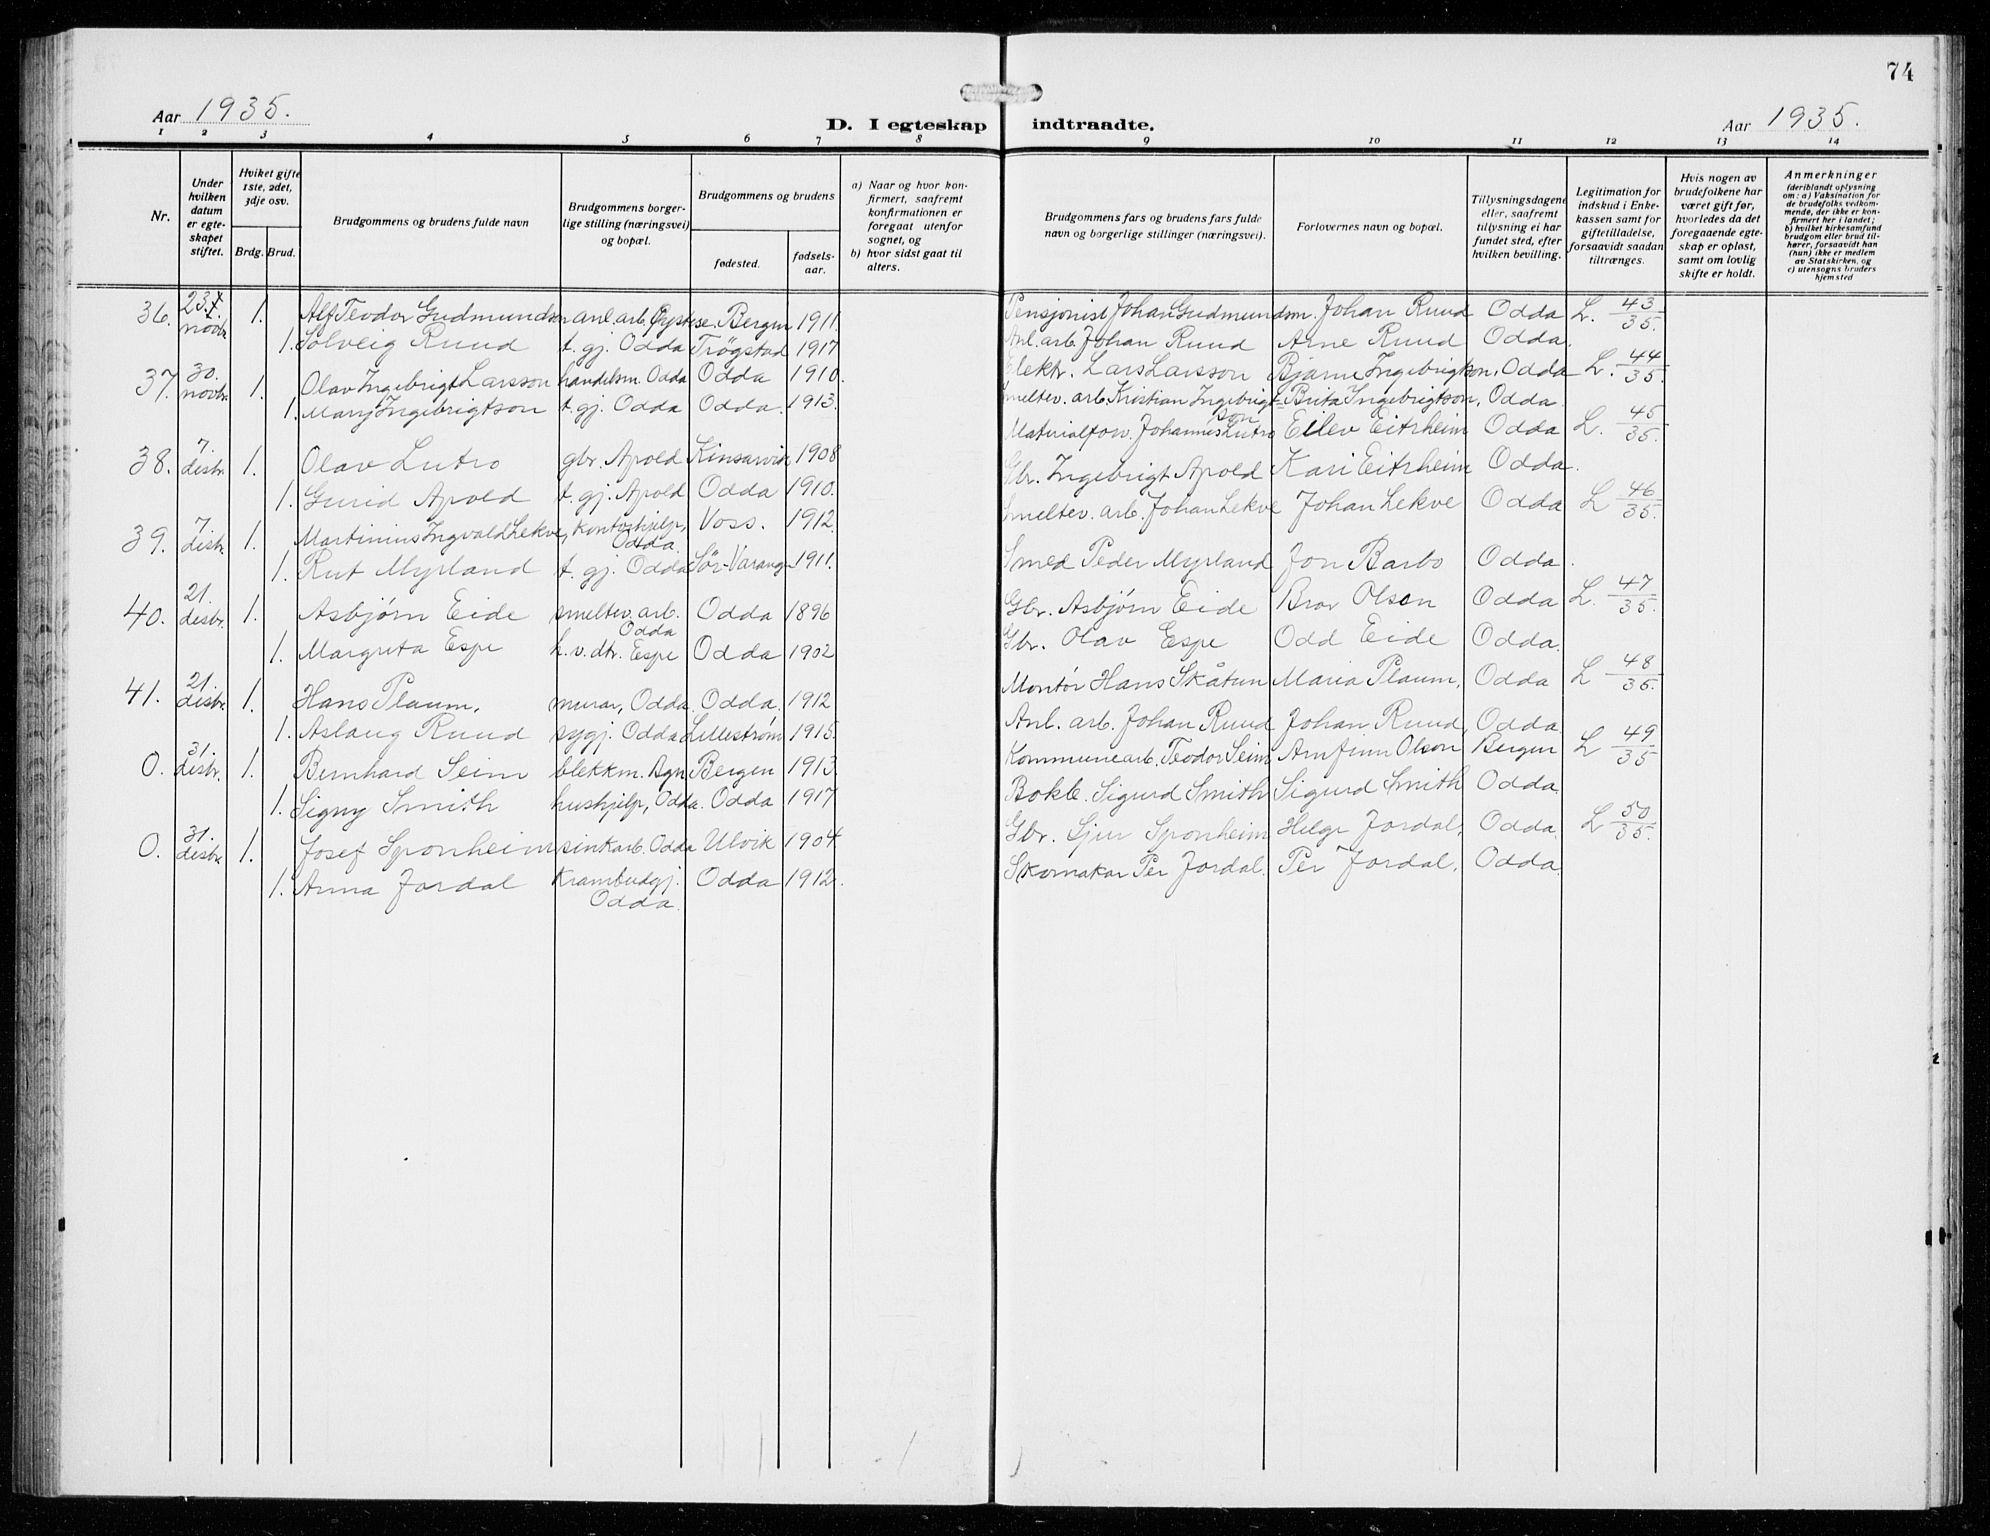 74
Aar 1935.
D. I egteskap indtraadte.
Aar 1935.
1 2 3 4 5 6 7 8 9 10 11 12 13 14
Nr.
Under hvilken datum er egteskapet stiftet.
Hviket gifte 1ste, 2det, 3dje osv.
Brdg. Brud.
Brudgommens og brudens fulde navn
Brudgommens borgerlige stilling (næringsvei) og bopæl.
Brudgommens og brudens
fødested.
fødselsaar.
a) Naar og hvor konfirmert, saafremt konfirmationen er foregaat utenfor sognet, og
b) hvor sidst gaat til alters.
Brudgommens fars og brudens fars fulde navn og borgerlige stillinger (næringsvei).
Forlovernes navn og bopæl.
Tillysningsdagene eller, saafremt tillysning ei har fundet sted, efter hvilken bevilling.
Legitimation for indskud i Enkekassen samt for giftetilladelse, forsaavidt saadan tiltrænges.
Hvis nogen av brudefolkene har været gift før, hvorledes da det foregaaende egteskap er opløst, samt om lovlig skifte er holdt.
Anmerkninger
(deriblandt oplysning om: a) Vaksination for de brudefolks vedkommende, der ikke er konfirmert her i landet;
b) hvilket kirkesamfund brudgom eller brud tilhører, forsaavidt han (hun) ikke er medlem av Statskirken, og
c) utensogns bruders hjemsted
36. 23. novbr. 1. Alf Teodor Gudmundsen anl. arb. Øystese. Bergen 1911. Pensjonist Johan Gudmundsen. Johan Ruud Odda L. 43/35.
1. Solveig Ruud t. gj. Odda Trøgstad 1917 Anl. arb. Johan Ruud Arne Ruud Odda.
37. 30. novbr. 1. Olav Ingebrigt Larsson handelsm. Odda Odda 1910. Elektr. Lars Larsson Bjarne Ingebrigtson, Odda L. 44/35.
1. Mary Ingebrigtson t. gj. Odda Odda. 1913. Smeltev. arb. Kristian Ingebrigtson Brita Ingebrigtson, Odda
38. 7. desbr. 1. Olav Lutro gbr. Apold Kinsarvik 1908 Materialforv. Johannes Lutro Eilev Eitrheim Odda L. 45/35.
1. Gurid Apold t. gj. Apold Odda 1910. Gbr. Ingebrigt Apold Kari Eitrheim Odda.
39. 7. desbr. 1. Martinius Ingvald Lekve, kontorhjelp, Odda. Voss. 1912 Smeltev. arb. Johan Lekve Johan Lekve Odda L 46/35.
1. Rut Myrland t. gj. Odda Sør-Varang 1911. Smed Peder Myrland Jon Barbo Odda.
40. 21. desbr. 1. Asbjørn Eide smeltev. arb. Odda Odda 1896 Gbr. Asbjørn Eide Bror Olsen Odda L. 47/35.
1. Margreta Espe h. v. dtr. Espe Odda 1902 Gbr. Olav Espe Odd Eide Odda.
41. 21. desbr. 1. Hans Plaum, murar, Odda Odda. 1912 Montør Hans Skåtun Maria Plaum, Odda L 48/35.
1. Aslaug Ruud sygj. Odda Lillestrøm 1915. Anl. arb. Johan Ruud Johan Ruud, Odda.
0. 31. desbr. 1. Bernhard Seim blekkm. Bgn Bergen 1913. Kommunearb. Teodor Seim Arnfinn Olson Bergen L 49/35
1. Signy Smith hushjelp, Odda. Odda 1917 Bokb. Sigurd Smith Sigurd Smith Odda
0. 31. desbr. 1. Josef Sponheim sinkarb. Odda Ulvik 1904. Gbr. Sjur Sponheim Helge Jordal, Odda. L 50/35.
1. Anna Jordal Krambudgj. Odda. Odda 1912. Skomakar Per Jordal. Per Jordal, Odda